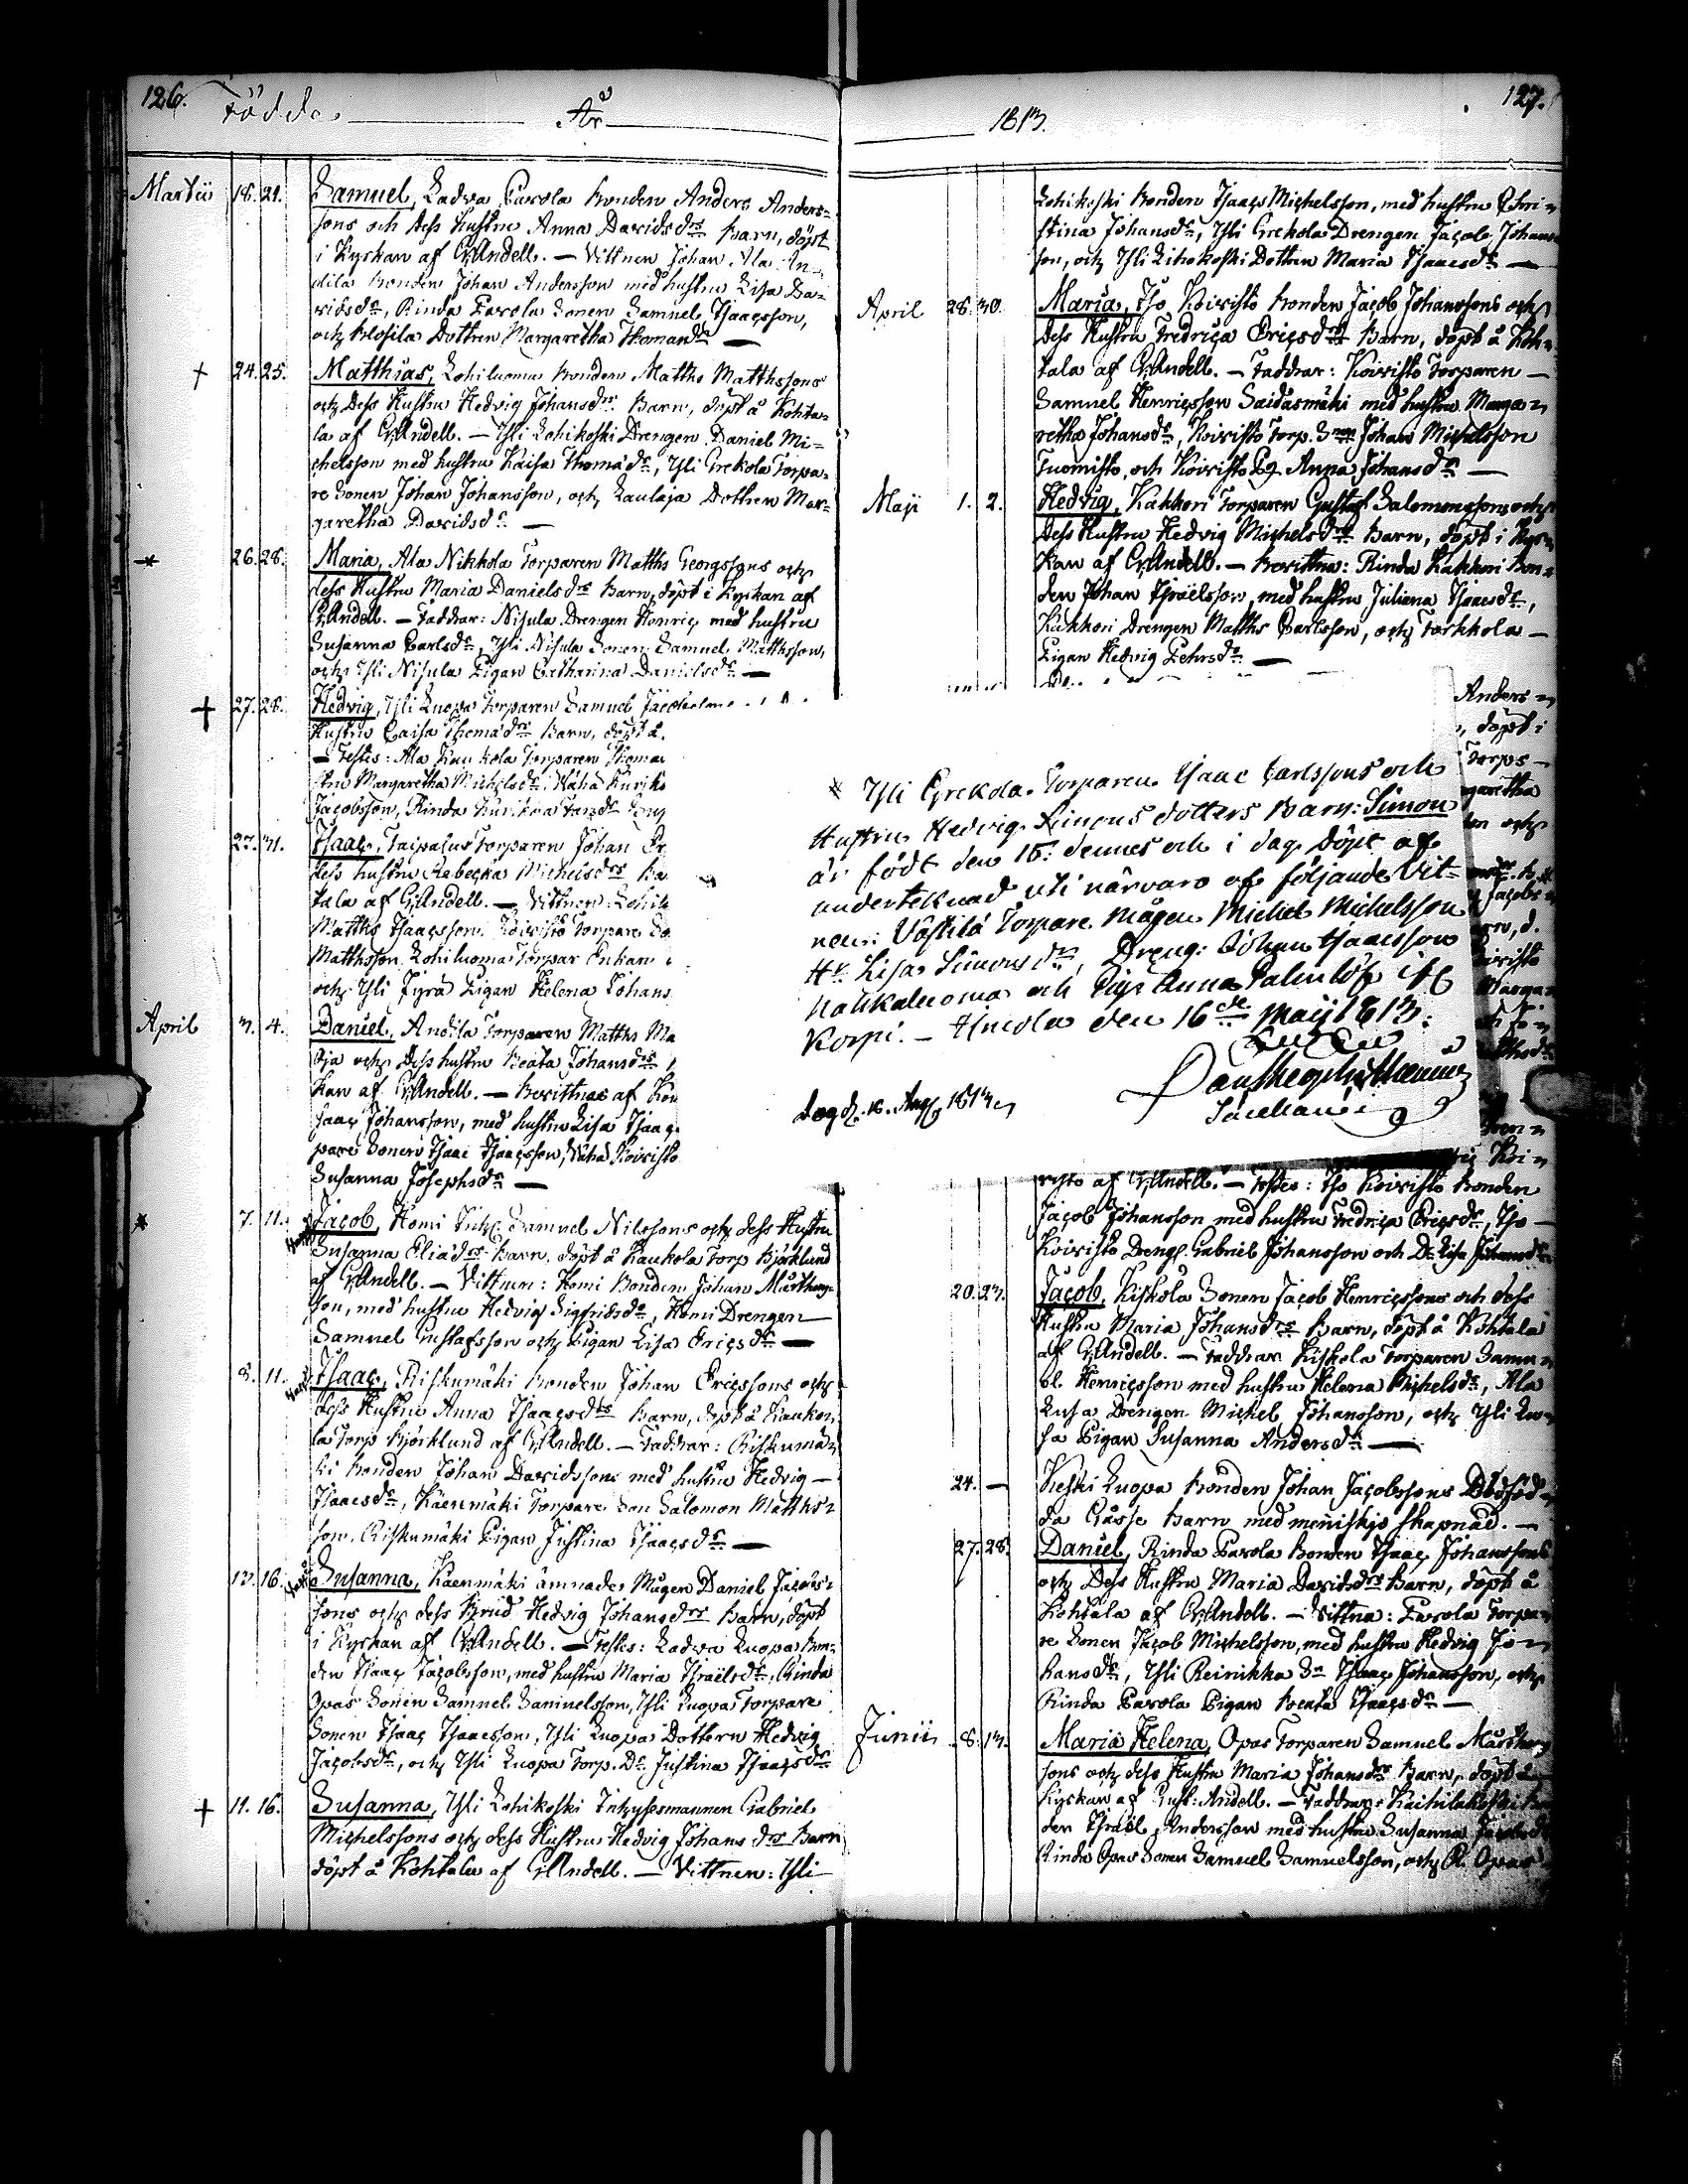 126.
Födde
År
Martii 18. 21. Samuel, Ladva Pavola Bonden Anders Anders=
sons och dess Hustru Anna Davidsdrs Barn, döpt
i Kyrkan af G. Andell. — Vittnen Johan Ala An=
dila Bonden Johan Andersson med hustru Lisa Da=
vidsdr, Rinda Pavola Sonen Samuel Isaacsson,
och Klosila Dottren Margaretha Thomasdr —
† 24. 25. Matthias, Lohiluoma Bonden Matths Matthssons
och Dess Hustru Hedvig Johansdrs Barn, döpt å Kohta=
la af G. Andell. — Yli Lohikoski Drengen Daniel Mi=
chelsson med hustru Kaisa Thomædr, Yli Grekola Torpa=
re Sonen Johan Johansson, och Laulaja Dottren Mar=
garetha Davidsdr —
26. 28. Maria, Ala Nikkola Torparen Matths Georgssons och
dess Hustru Maria Danielsdrs Barn, döpt i Kyrkan af
G. Andell. — Faddrar: Nisula Drengen Henric med hustru
Susanna Carlsdr, Yli Nisula Sonen Samuel Matthsson,
och Yli Nisula Pigan Catharina Danielsdr —
† 27. 28. Hedvig, Yli Luopa Torparen Samuel
Hustru Caisa Thomædrs Barn, döpt å
— Testes: Ala Kau kola Torparen Thomas
stru Margaretha Michelsdr, Vähä Kurikk
Jacobsson, Rinda
27. 31. Isaac, Taipalus Torparen Johan Er
dess hustru Rebecka Michelsdrs Ba
tala af G. Andell. — Vittnen: Lohik
Matths Isaacsson, Koivisto Torpare So
Matthsson Lohiluoma Torpar Enkan
och Yli Jyrä Pigan Helena Johans
April 3. 4. Daniel, Andila Torparen Matths Ma
oja och Dess hustru Beata Johansdrs
kan af G. Andell. — Bevittnas af Kou
saac Johansson, med hustru Lisa Isaac
pare Sonen Isaac Isaacsson, Vähä Koivisto
Susanna Josephsdr —
7. 11. Jacob, Komi Inh. Samuel Nilssons och dess Hustru
Susanna Eliædrs Barn, döpt å Kaukola Torp Björklund
af G. Andell. — Vittnen: Komi Bonden Johan Mårthens=
son, med hustru Hedvig Sigfridsdr, Komi Drengen
Samuel Gustafsson och Pigan Lisa Ericsdr —
8. 11. Isaac, Riskumäki Bonden Johan Ericssons och
dess Hustru Anna Isaacsdrs Barn, döpt å Kauko=
la Torp Björklund af G. Andell. — Faddrar: Riskumä=
ki Bonden Johan Davidsson med hustru Hedvig —
Isaacsdr, Käenmäki Torpare Son Salomon Matths=
son, Riskumäki Pigan Justina Isaacsdr —
13. 16. Susanna, Käenmäki ämnade Mågen Daniel Jacobs=
sons och dess Brud Hedvig Johansdrs Barn, döpt
i Kyrkan af G. Andell. — Testes: Ladva Luopa Bon=
den Isaac Jacobsson, med hustru Maria Israelsdr, Rinda
Opas Sonen Samuel Samuelsson, Yli Luopa Torpare
Sonen Isaac Isaacsson, Yli Luopa Dottern Hedvig
Jacobsdr, och Yli Luopa Torp. Dr. Justina Isaacsdr
† 11. 16. Susanna, Yli Lohikoski Inhysesmannen Gabriel
Michelssons och dess Hustru Hedvig Johansdrs Barn
döpt å Kohtala af G. Andell. — Vittnen: Yli
127.
1813.
Lohikoski Bonden Isaac Michelsson, med hustru Chri=
stina Johansdr, Yli Grekola Drengen Jacob Johans=
son, och Yli Lihokoski Dottren Maria Isaacsdr —
April 28. 30. Maria, Iso Koivisto Bonden Jacob Johanssons och
dess Hustru Fredrica Ericsdrs Barn, döpt å Koh=
tala af G. Andell. — Faddrar: Koivisto Torparen —
Samuel Henricsson Saidasmäki med hustru Marga=
retha Johansdr, Koivisto Torp. Snen Johan Michelsson
Tuomisto, och Koivisto Pg. Anna Johansdr —
Maji 1. 2. Hedvig, Kakkori Torparen Gustaf Salomonssons och
dess Hustru Hedvig Michelsdrs Barn, döpt i Kyr=
kan af G. Andell. — Bevittna: Rinda Kakkori Bon=
den Johan Israelsson, med hustru Juliana Isaacsdr,
Kakkori Drengen Matths Carlsson, och Torkkola —
Pigan Hedvig Pehrsdr —
Anders=
, döpt i
Torps —
garetha
och
Yli Grekola Torparen Isaac Carlssons och
Hustru Hedvig Simons dotters Barn: Simon
är född den 15: dennes och i dag döpt af
undertecknad uti närvaro af följande Vit=
nen: Västilä Torpare Mågen Michel Michelsson
Hu Lisa Simonsdr, Dreng: Johan Isaacsson
Haukaluoma och Pig: Anna Palmlöf
Korpi. — Uneola den 16de Maij 1813.
risto af G. Andell. — Testes: Iso Koivisto Bonden
Jacob Johansson med hustru Fredrica Ericsdr, Iso —
Koivisto Dreng. Gabriel Johansson och Dr. Lisa Johansdr
20. 23. Jacob, Kiskola Sonen Jacob Henricssons och dess
Hustru Maria Johansdrs Barn, döpt å Kohtala
af G. Andell. — Faddrar Kiskola Torparen Samu=
el Henricsson med hustru Helena Michelsdr, Ala
Luopa Drengen Michel Johansson, och Yli Luo=
pa Pigan Susanna Andersdr —
24. — Keski Luopa Bonden Johan Jacobssons Dödföd=
da Gåsse Barn med menniskjo skapnad. —
27. 28. Daniel, Rinda Pavola Bonden Isaac Johanssons
och Dess Hustru Maria Davidsdrs Barn, döpt å
Kohtala af G. Andell. — Vittna: Pavola Torpa=
re Sonen Jacob Michelsson, med hustru Hedvig Jo=
hansdr, Yli Reinikka Sn Isaac Johansson, och
Rinda Pavola Pigan Beata Isaacsdr —
Junii 8. 13. Maria Helena, Opas Torparen Samuel Mårthens
sons och dess Hustru Maria Johansdrs Barn, döpt i
Kyrkan af Gust: Andell. — Faddrar:
den Israel Andersson med hustru Susanna Jacobsdr
Rinda Opas Sonen Samuel Samuelsson, och R. Opas